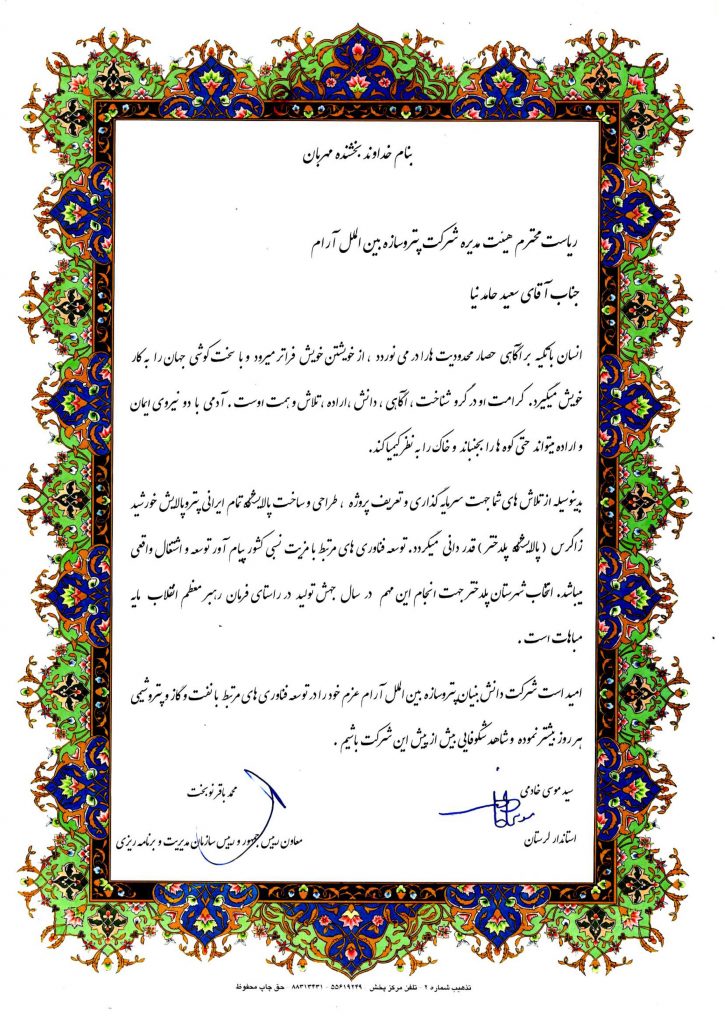 بنام خداوند بخشنده مهربان
ریاست محترم هیئت مدیره شرکت پتروسازه بین الملل آرام
جناب آقای سعید حامد نیا
انسان با تکیه بر آگاهی حصار محدودیت ها را در می نوردد ، از خویشتن خویش فراتر میرود و با سخت کوشی جهان را به کار
خویش میگیرد. کرامت او در گرو شناخت ، آگاهی ، دانش ،اراده ، تلاش و همت اوست . آدمی با دو نیروی ایمان
و اراده میتواند حتی کوه ها را بجنباند و خاک را به نظر کیمیا کند.
بدینوسیله از تلاش های شما جهت سرمایه گذاری و تعریف پروژه ، طراحی و ساخت پالایشگاه تمام ایرانی پتروپالایش خورشید
زاگرس ( پالایشگاه پلدختر ) قدر دانی میگردد. توسعه فناوری های مرتبط با مزیت نسبی کشور پیام آور توسعه و اشتغال واقعی
میباشد. انتخاب شهرستان پلدختر جهت انجام این مهم در سال جهش تولید در راستای فرمان رهبر معظم انقلاب مایه
مباهات است .
امید است شرکت دانش بنیان پتروسازه بین الملل آرام عزم خود را در توسعه فناوری های مرتبط با نفت و گاز و پتروشیمی
هر روز بیشتر نموده و شاهد شکوفایی بیش از پیش این شرکت باشیم .
سید موسی خادمی
استاندار لرستان
محمد باقر نوبخت
معاون رییس جمهور و رییس سازمان مدیریت و برنامه ریزی
تذهیب شماره ۲ - تلفن مرکز پخش ۵۵۶۱۹۲۴۹ - ۸۸۳۱۳۴۳۱ - حق چاپ محفوظ